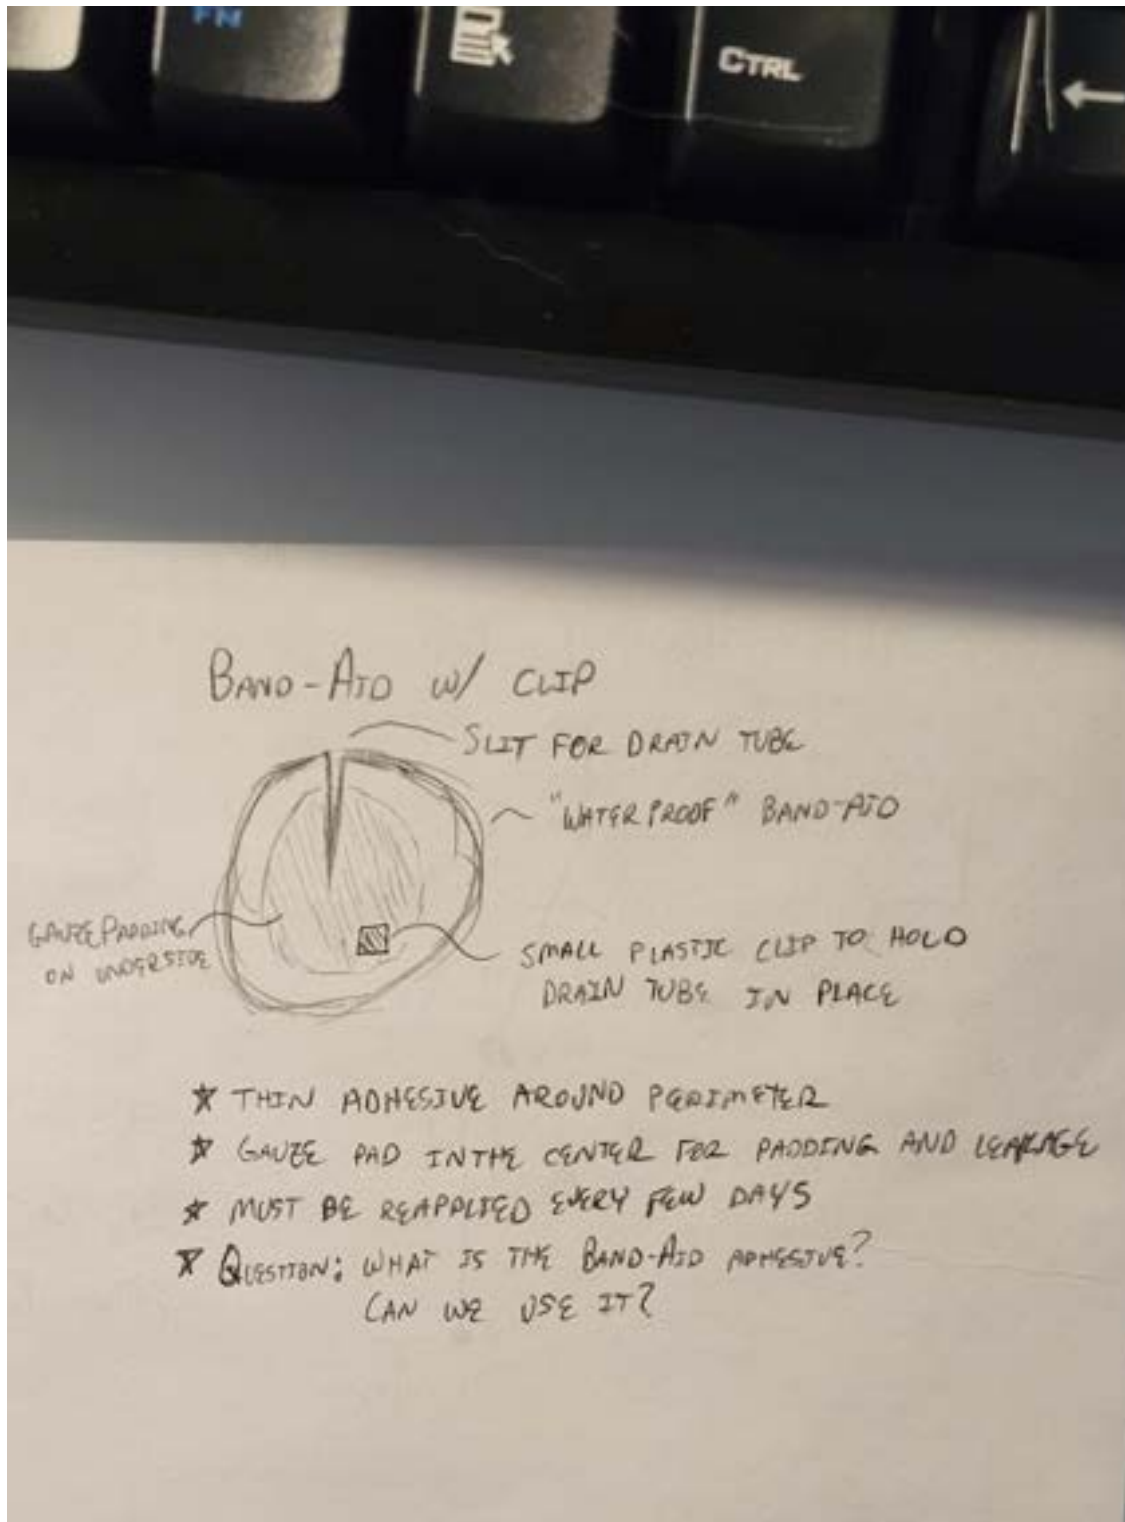 FN
CTRL
BAND-AID W/ CLIP
SLIT FOR DRAIN TUBE
"WATERPROOF" BAND-AID
GAUZE PADDING
ON UNDERSIDE
SMALL PLASTIC CLIP TO HOLD
DRAIN TUBE IN PLACE
★ THIN ADHESIVE AROUND PERIMETER
★ GAUZE PAD IN THE CENTER FOR PADDING AND LEAKAGE
★ MUST BE REAPPLIED EVERY FEW DAYS
★ QUESTION: WHAT IS THE BAND-AID ADHESIVE?
CAN WE USE IT?